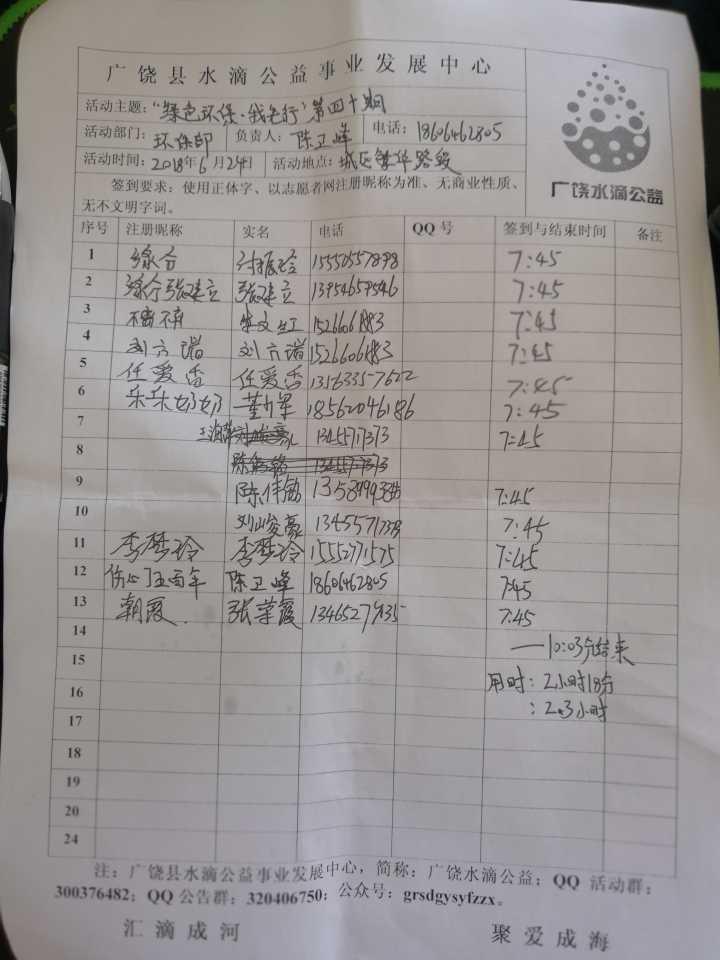 广饶县水滴公益事业发展中心
活动主题：“绿色环保·我先行”第四十期
活动部门： 环保部 负责人： 陈卫峰 电话： 18606462805
活动时间：2018年6月24日 活动地点： 城区 路段
签到要求：使用正体字、以志愿者网注册昵称为准、无商业性质、
无不文明字词。
广饶水滴公益
序号 注册昵称 实名 电话 QQ 号 签到与结束时间 备注
1 7:45
2 张建立 张建立 13954659546 7:45
3 7:45
4 刘方谱 刘方谱 7:45
5 任爱香 任爱香 7:45
6 乐乐奶奶 18562046186 7:45
7 13455717373 7:45
8
9 陈伟敏 7:45
10 刘峻豪 7:45
11 李梦玲 李梦玲 15552771575 7:45
12 伤心了五百年 陈卫峰 18606462805 7:45
13 朝霞. 张荣霞 7:45
14
—10:03分结束
15
用时：2小时18分
16
：2.3小时
17
18
19
20
24
注：广饶县水滴公益事业发展中心，简称：广饶水滴公益；QQ 活动群：
300376482；QQ 公告群：320406750；公众号：grsdgysyfzzx。
汇滴成河 聚爱成海